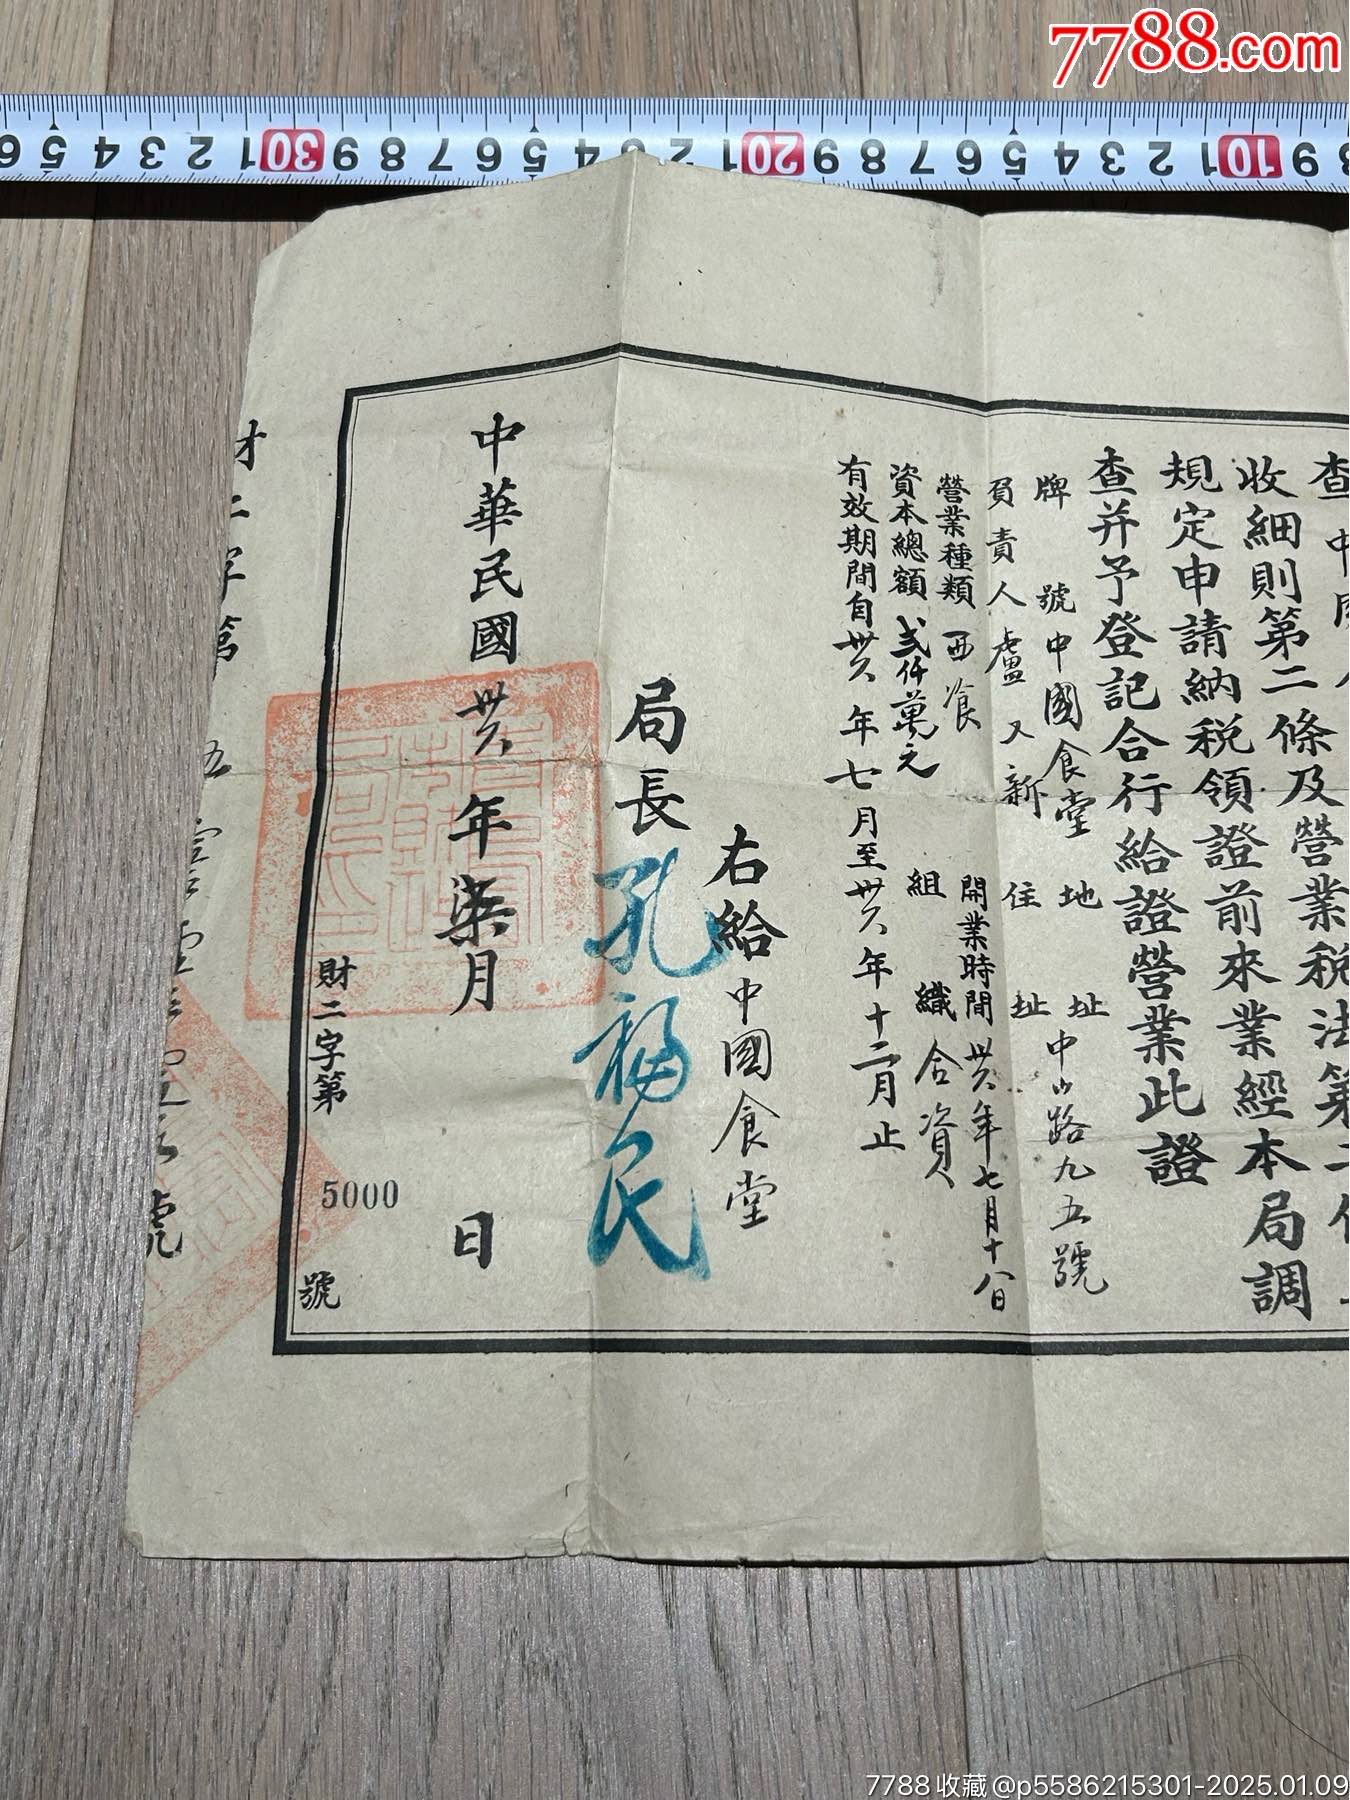 7788.com
6 5 4 3 2 1 30 9 8 7 6 5 4 3 2 1 20 9 8 7 6 5 4 3 2 1 10 9 8
收細則第二條及營業稅法第
規定申請納稅領證前來業經本局調
查并予登記合行給證營業此證
牌號中國食堂 地址中山路九五號
負責人盧又新 住址
營業種類西飡 開業時間卅六年七月十八日
資本總額貳仟萬元 組織合資
有效期間自卅六年七月至卅六年十二月止
右給中國食堂
局長孔福民
中華民國卅六年柒月 日
財二字第5000號
財二字第五
號
7788收藏@p5586215301-2025.01.09